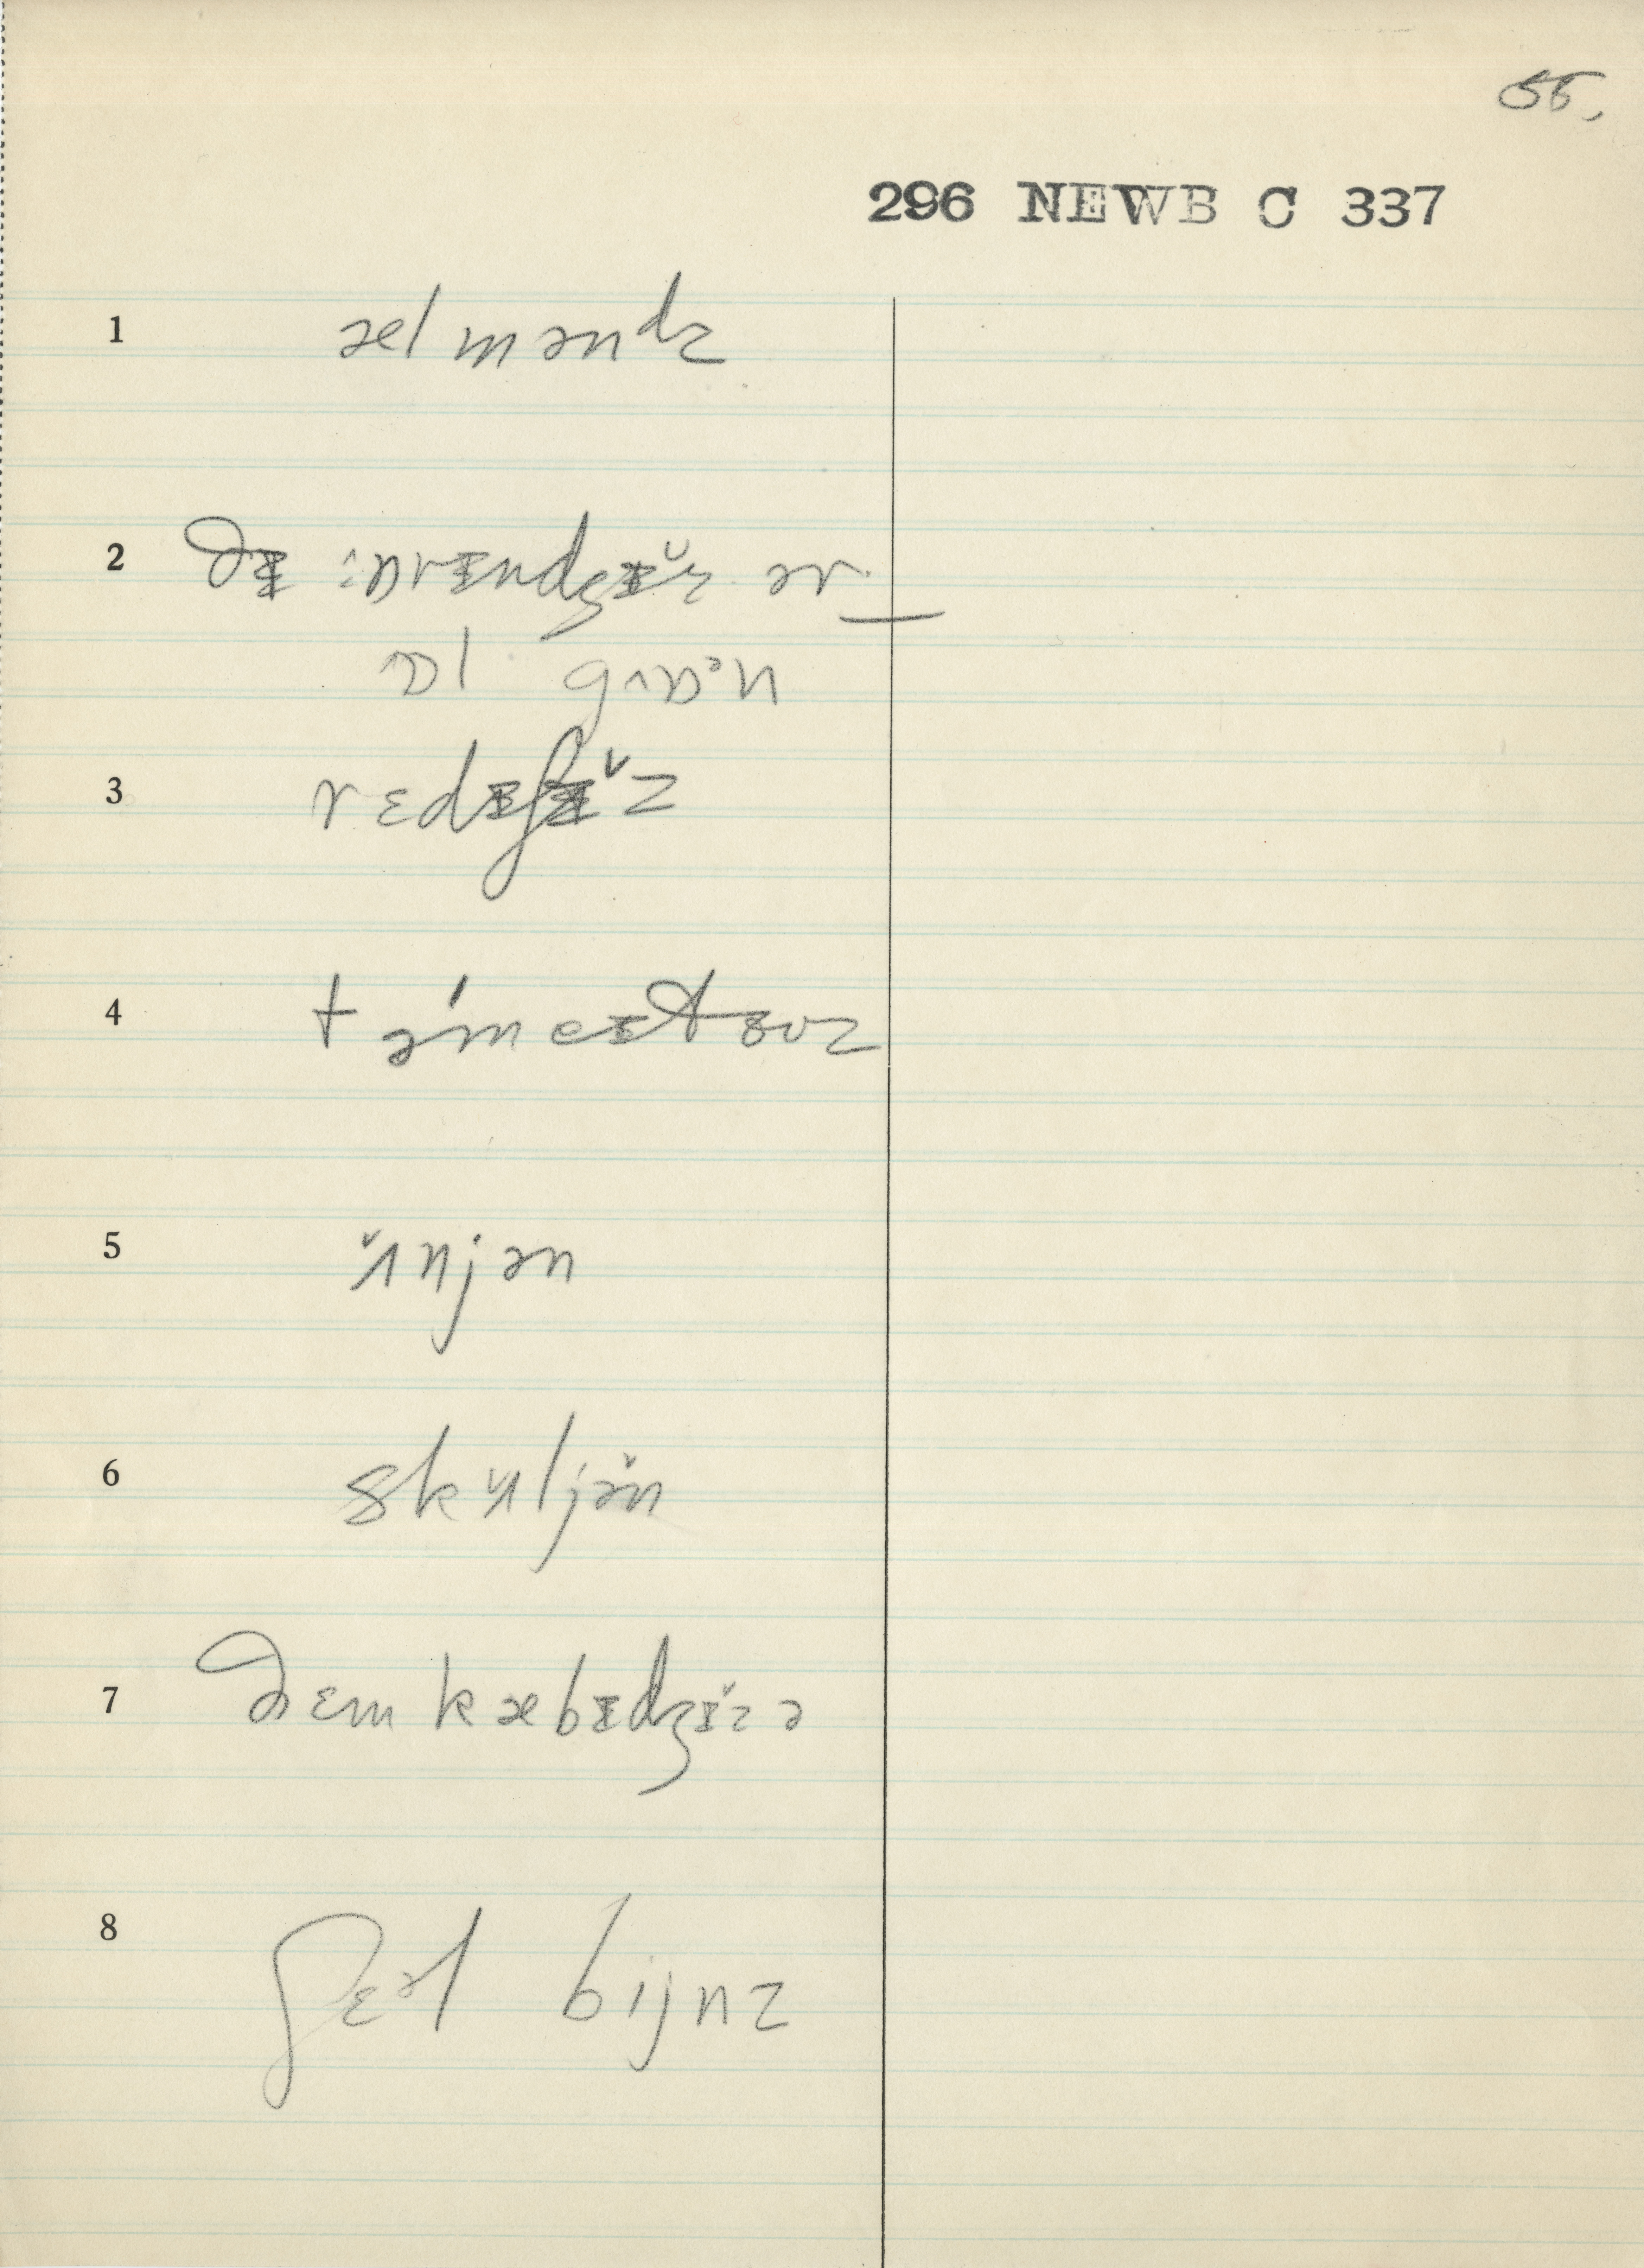 55.
296 NEWB C 337
1 æl mənᵈz
2 ðɪ ɒrɪndʒɪ̆z ər
ɒl gɒᵊn
3 rɛdɪʃɪ̆z
4 təmeɪtɵʊz
5 ʌ̆njən
6 skʌ̆ljə̆n
7 ðɛm kæbɪdʒɪ̆z ə
8 ʃɛᵊl bijnz